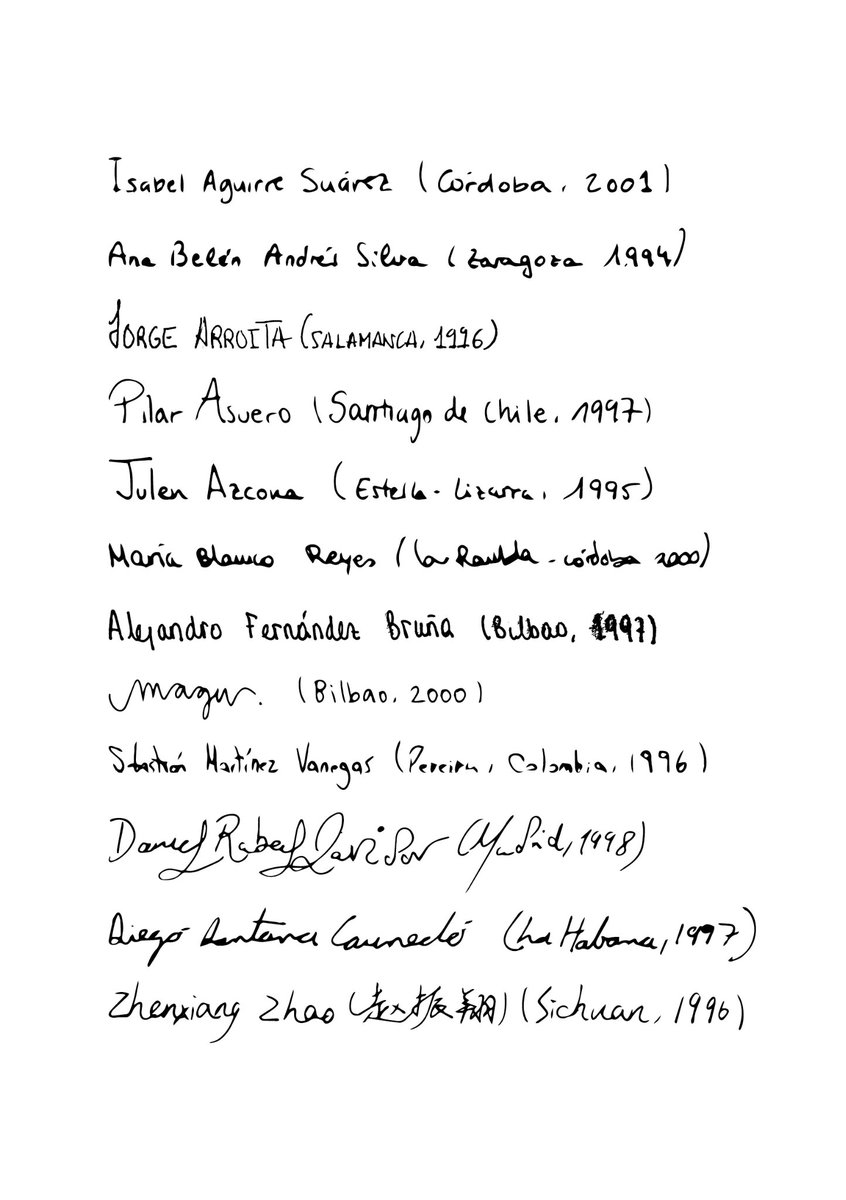 Isabel Aguirre Suárez (Córdoba, 2001)
Ana Belén Andrés Silva (Zaragoza 1994)
JORGE ARROITA (SALAMANCA, 1996)
Pilar Asuero (Santiago de Chile, 1997)
Julen Azcona (Estella-Lizarra, 1995)
María Blanco Reyes (La Rambla - Córdoba 2000)
Alejandro Fernández Bruña (Bilbao, 1997)
Magur. (Bilbao, 2000)
Sebastián Martínez Vanegas (Pereira, Colombia, 1996)
Daniel Rabel (Madrid, 1998)
Diego Santana Caunedó (La Habana, 1997)
Zhenxiang Zhao (赵振翔) (Sichuan, 1996)